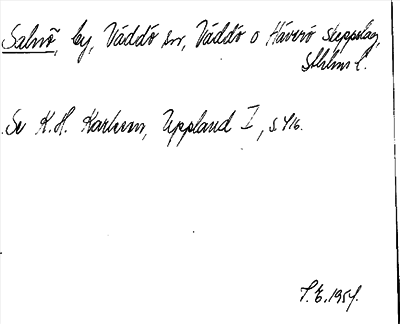 Salnö, by, Väddö sn, Väddö o Häverö skeppslag,
Sthlms l.
Se K.H. Karlsson, Uppland I, s. 416.
S.E. 1954.